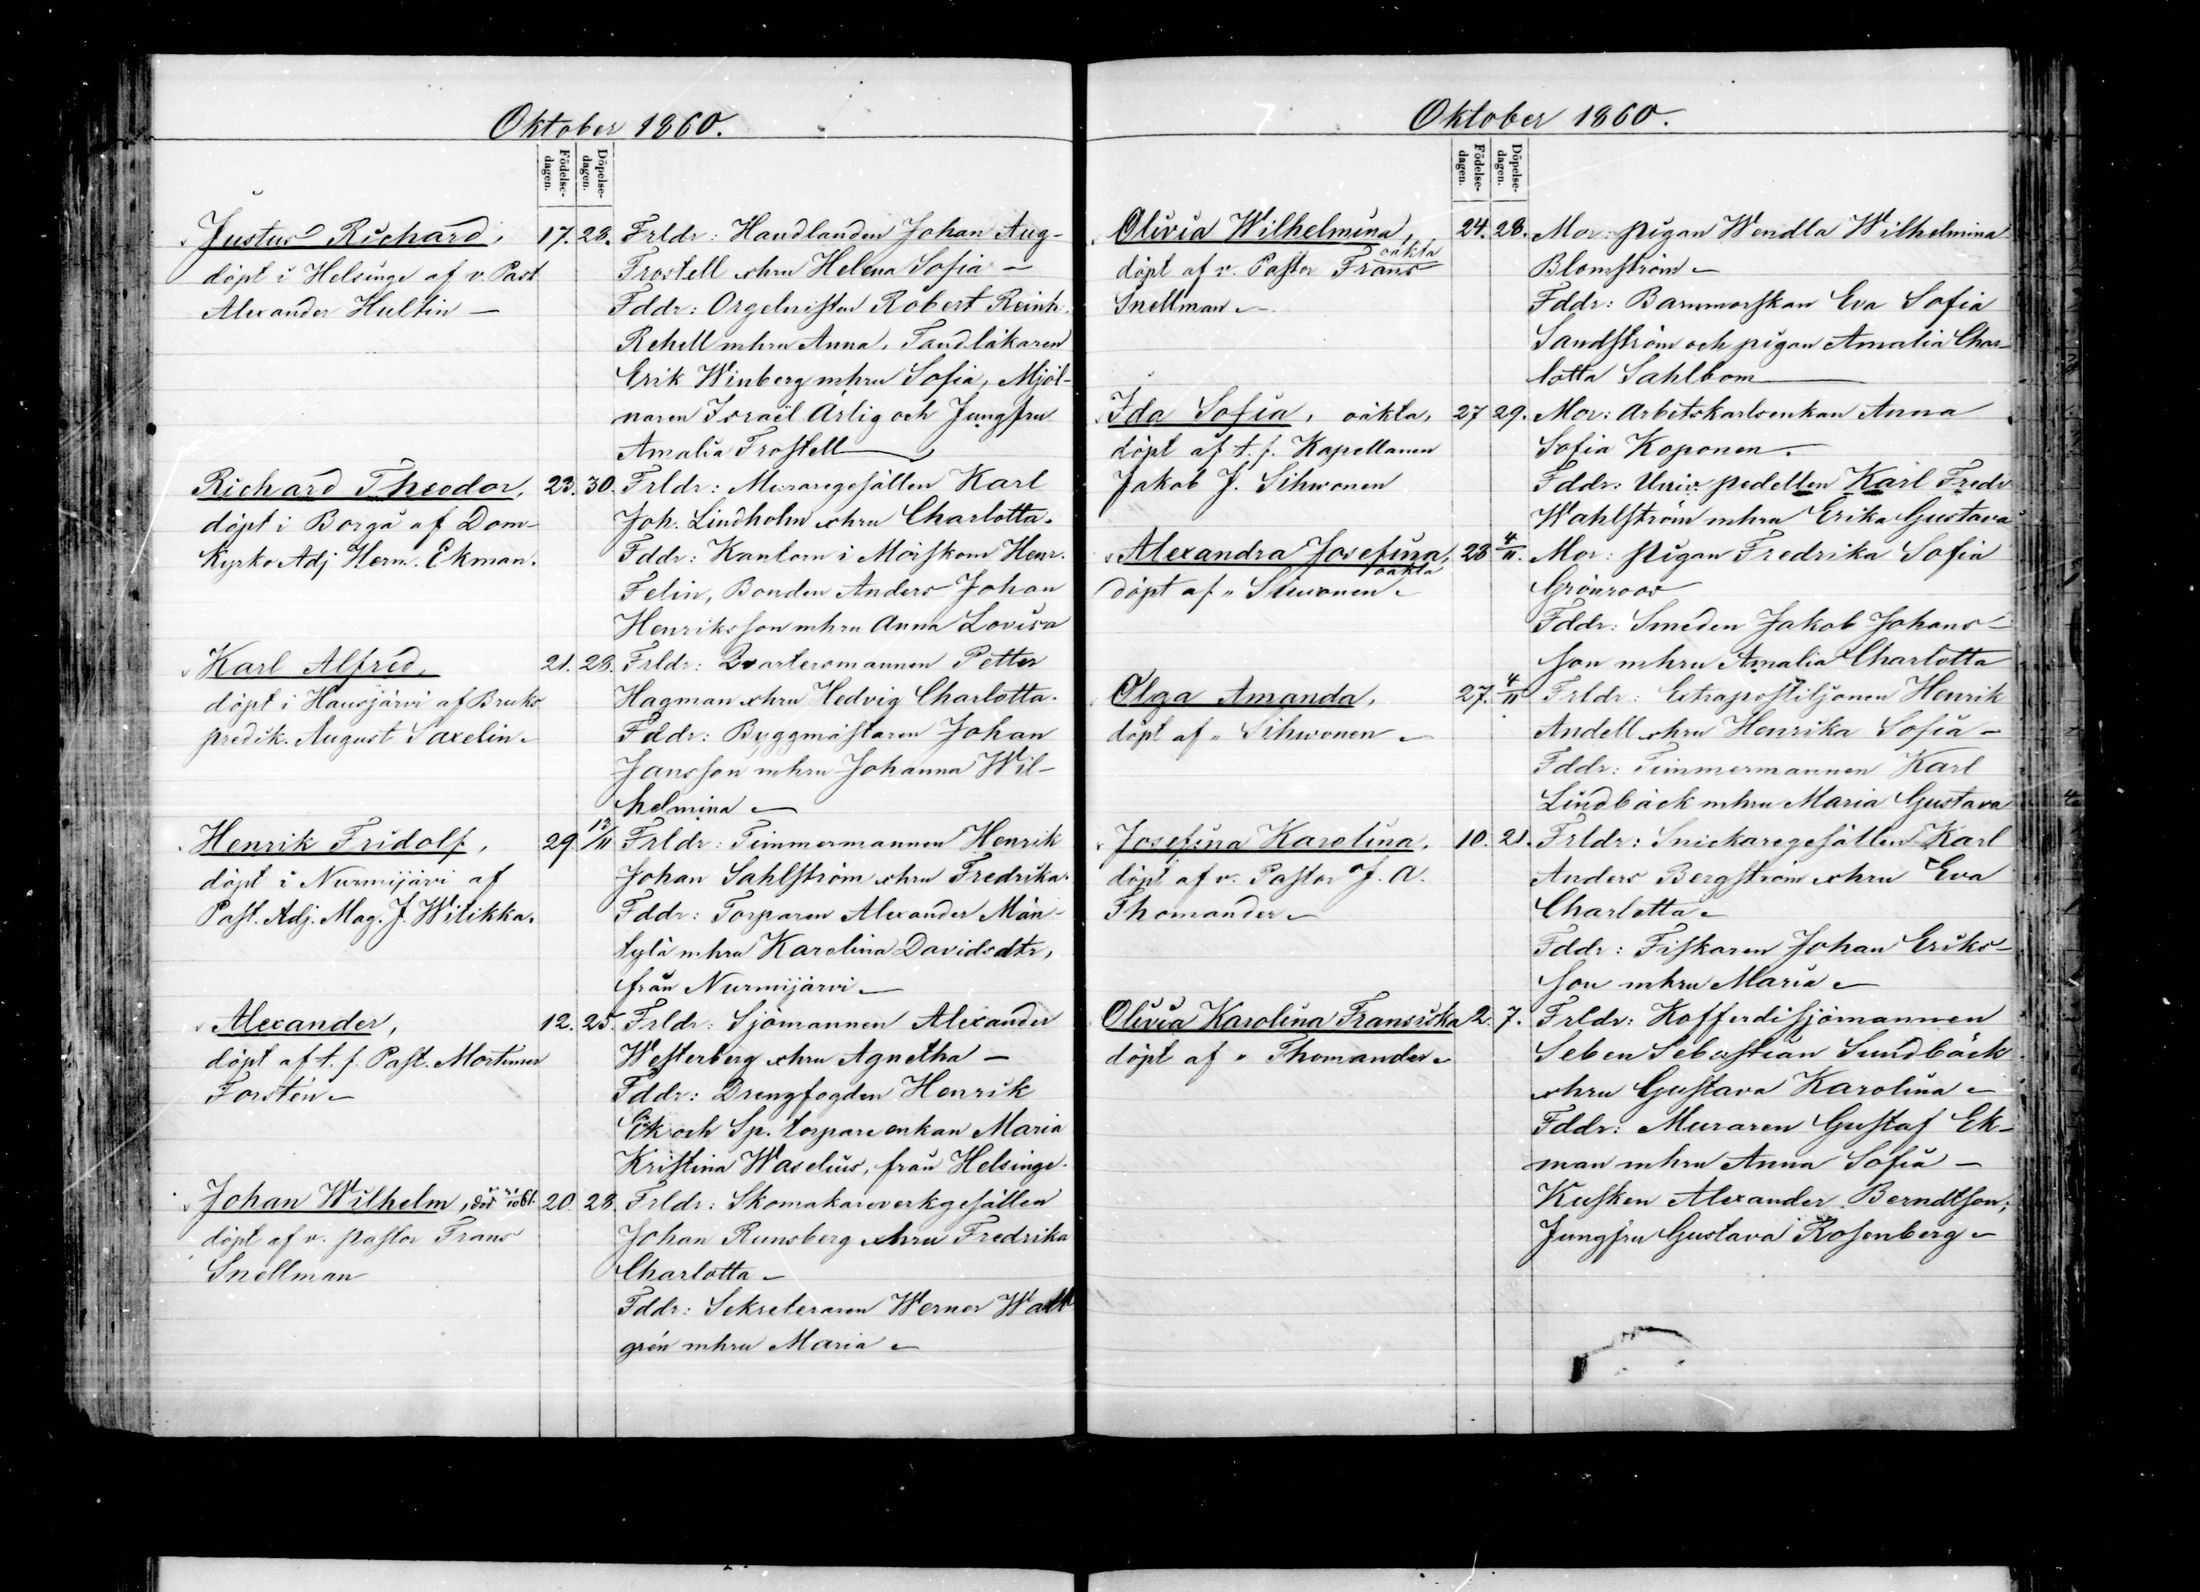 Oktober 1860.
Födelse-
dagen.
Döpelse-
dagen.
Justus Richard,
döpt i Helsinge af v. Past
Alexander Hultin —
17. 28.
Frldr: Handlanden Johan Aug-
Frostell o hru Helena Sofia —
Fddr: Orgelnisten Robert Reinh.
Rehell m hru Anna, Tandläkaren
Erik Winberg m hru Sofia, Mjöl-
naren Israël Ärlig och Jungfru
Amalia Frostell —
Richard Theodor,
döpt i Borgå af Dom-
Kyrko Adj Herm. Ekman.
23. 30.
Frldr: Muraregesällen Karl
Joh. Lindholm o hru Charlotta.
Fddr: Kantorn i Mörskom Henr.
Felin, Bonden Anders Johan
Henriksson m hru Anna Lovisa
Karl Alfred,
döpt i Hausjärvi af Bruks
predik. August Saxelin.
21. 28.
Frldr: Qvartersmannen Petter
Hagman o hru Hedvig Charlotta.
Fddr: Byggmästaren Johan
Jansson m hru Johanna Wil-
helmina —
Henrik Fridolf,
döpt i Nurmijärvi af
Past. Adj. Mag. J. Witikka.
29. 12/11
Frldr: Timmermannen Henrik
Johan Sahlström o hru Fredrika.
Fddr: Torparen Alexander Män-
tylä m hru Karolina Davidsdtr,
från Nurmijärvi —
Alexander,
döpt af t. f. Past. Mortimer
Forstén —
12. 25.
Frldr: Sjömannen Alexander
Westerberg o hru Agnetha —
Fddr: Drengfogden Henrik
Ek och Sp. torpareenkan Maria
Kristina Waselius, från Helsinge.
Johan Wilhelm, död
döpt af v. pastor Frans
Snellman
20. 28.
Frldr: Skomakareverkgesällen
Johan Runsberg o hru Fredrika
Charlotta —
Fddr: Sekreteraren Werner Wall
grén m hru Maria —
Oktober 1860.
Födelse-
dagen.
Döpelse-
dagen.
Olivia Wilhelmina,
oäkta
döpt af v. Pastor Frans
Snellman —
24. 28.
Mor: pigan Wendla Wilhelmina
Blomström —
Fddr: Barnmorskan Eva Sofia
Sandström och pigan Amalia Char-
lotta Sahlbom —
Ida Sofia, oäkta,
döpt af t. f. Kapellanen
Jakob J. Sihvonen
27 29.
Mor: Arbetskarlsenkan Anna
Sofia Koponen.
Fddr: Univ. pedellen Karl Fredr
Wahlström m hru Erika Gustava
Alexandra Josefina,
oäkta
döpt af " Sihvonen —
28 4/11.
Mor: pigan Fredrika Sofia
Grönroos
Fddr: Smeden Jakob Johans-
son m hru Amalia Charlotta
Olga Amanda,
döpt af " Sihvonen —
27. 4/11
Frldr: Extrapostiljonen Henrik
Andell o hru Henrika Sofia —
Fddr: Timmermannen Karl
Lindbäck m hru Maria Gustava
Josefina Karolina,
döpt af v. Pastor J. A.
Thomander —
10. 21.
Frldr: Snickaregesällen Karl
Anders Bergström o hru Eva
Charlotta —
Fddr: Fiskaren Johan Eriks-
son m hru Maria —
Olivia Karolina Fransiska
döpt af " Thomander —
2. 7.
Frldr: Kofferdisjömannen
Seben Sebastian Sundbäck
o hru Gustava Karolina —
Fddr: Muraren Gustaf Ek-
man m hru Anna Sofia —
Kusken Alexander Berndtson,
Jungfru Gustava Rosenberg —